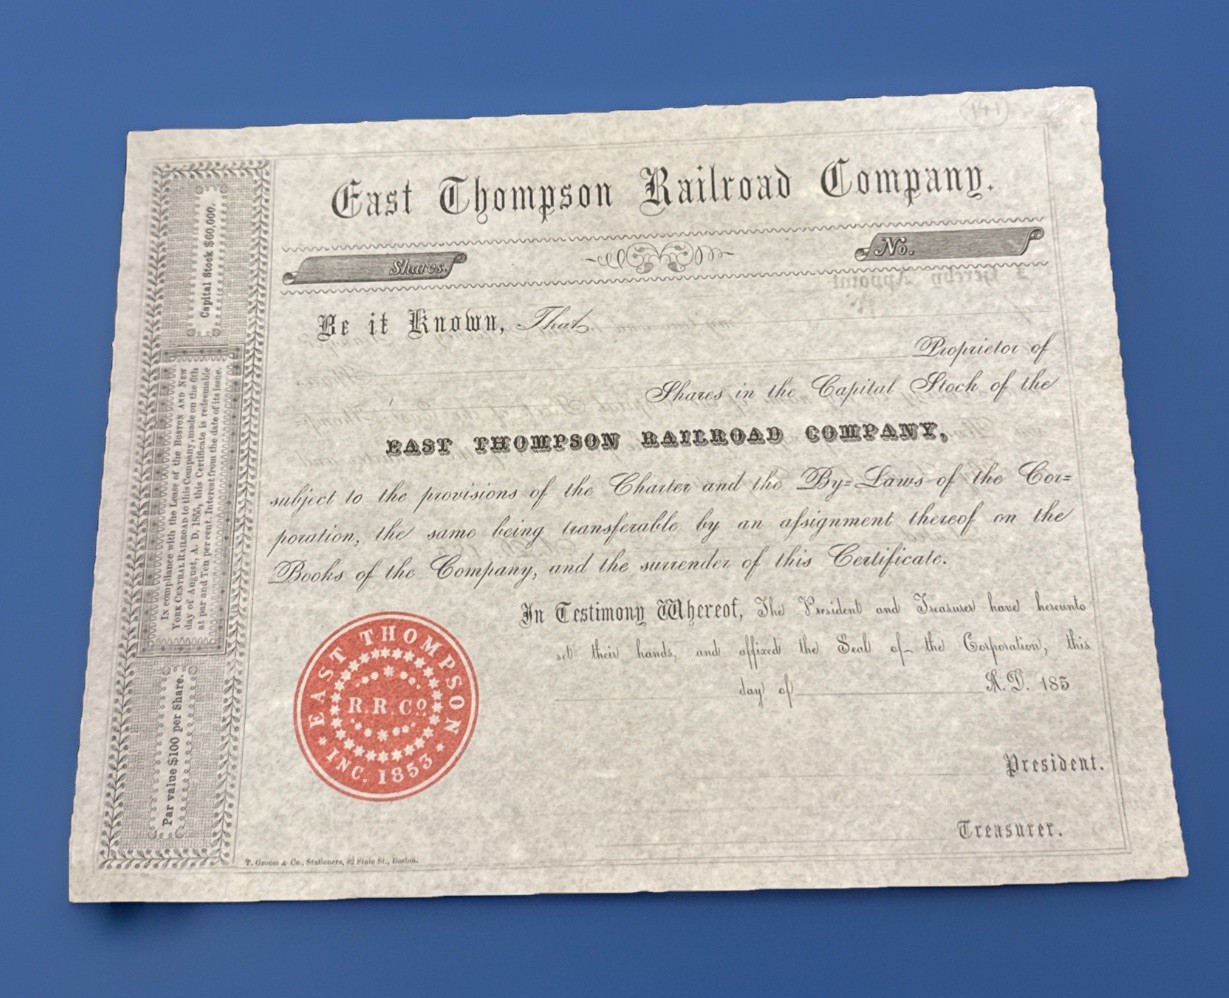 (141)
East Thompson Railroad Company.
Shares.
No.
Be it Known, That
Proprietor of
Shares in the Capital Stock of the
EAST THOMPSON RAILROAD COMPANY,
subject to the provisions of the Charter and the By=Laws of the Cor=
poration, the same being transferable by an aſsignment thereof on the
Books of the Company, and the surrender of this Certificate.
In Testimony Whereof, The President and Treasurer have hereunto
set their hands, and affixed the Seal of the Corporation, this
day of A. D. 185
President.
Treasurer.
EAST THOMPSON
R. R. Co
INC. 1853
T. Groom & Co., Stationers, 82 State St., Boston.
Capital Stock $60,000.
IN compliance with the Lease of the BOSTON AND NEW
YORK CENTRAL RAILROAD to this Company, made on the 6th
day of August, A. D. 1855, this Certificate is redeemable
at par and Ten per cent. Interest from the date of its issue.
Par value $100 per Share.